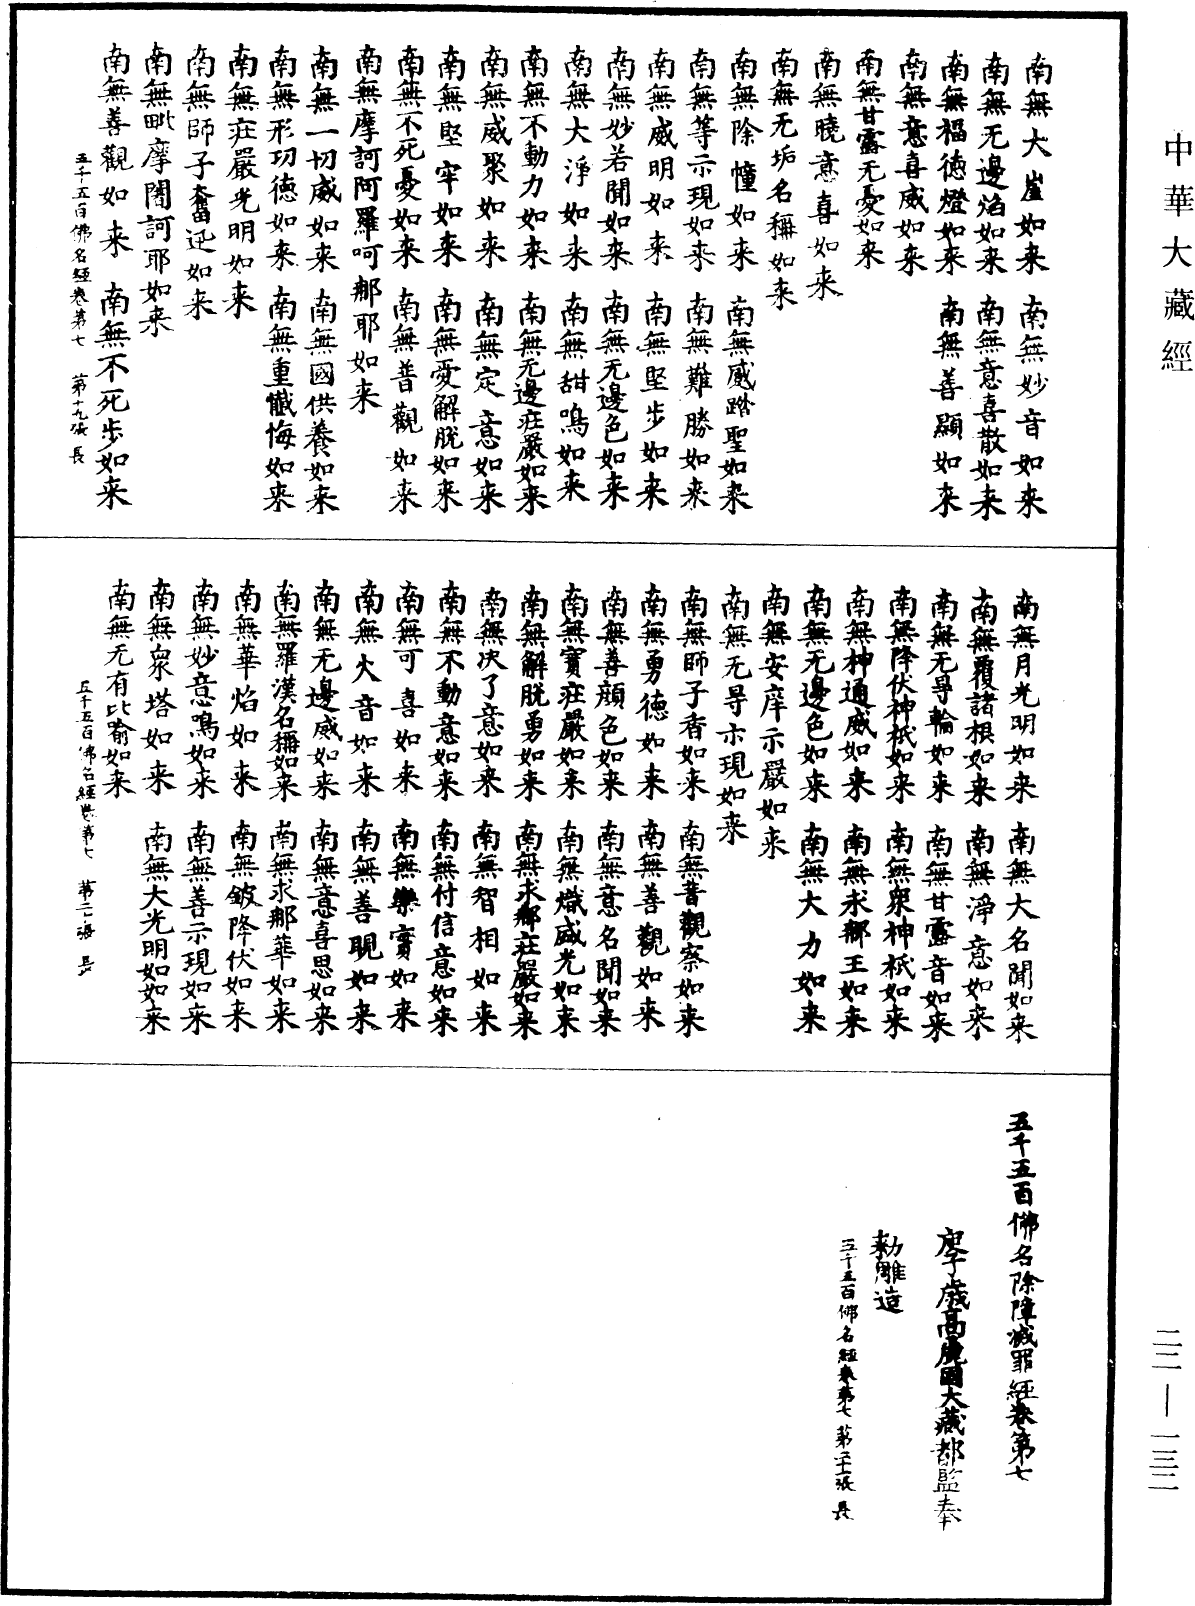 中華大藏經
南無大崖如来 南無妙音如来
南無无邊焰如来 南無意喜散如来
南無福德燈如来 南無善顯如来
南無意喜威如来
南無甘露无憂如来
南無曉意喜如来
南無无垢名稱如来
南無除憧如来 南無威踏聖如来
南無等示現如来 南無難勝如来
南無威明如来 南無堅步如来
南無妙若聞如来 南無无邊色如来
南無大淨如来 南無甜鳴如来
南無不動力如来 南無无邊莊嚴如来
南無威聚如来 南無定意如来
南無堅牢如来 南無愛解脫如来
南無不死憂如来 南無普觀如来
南無摩訶阿羅呵郍耶如来
南無一切威如来 南無國供養如来
南無形功德如来 南無重懺悔如来
南無莊嚴光明如来
南無師子奮迅如来
南無毗摩闍訶耶如来
南無善觀如来 南無不死步如来
五千五百佛名經卷第七 第十九張 長
南無月光明如来 南無大名聞如来
南無覆諸根如来 南無淨意如来
南無无㝵輪如来 南無甘露音如来
南無降伏神祇如来 南無衆神祇如来
南無神通威如来 南無求郍王如来
南無无邊色如来 南無大力如来
南無安庠示嚴如来
南無无㝵示現如来
南無師子香如来 南無普觀察如来
南無勇德如来 南無善觀如来
南無善顏色如来 南無意名聞如来
南無寶莊嚴如来 南無熾盛光如来
南無解脫勇如来 南無求郍莊嚴如来
南無决了意如来 南無智相如来
南無不動意如来 南無付信意如来
南無可喜如来 南無樂實如来
南無火音如来 南無善眼如来
南無无邊威如来 南無意喜思如来
南無羅漢名稱如来 南無求郍華如来
南無華焰如来 南無鈹降伏如来
南無妙意鳴如来 南無善示現如来
南無衆塔如来 南無大光明如来
南無无有比喻如来
五千五百佛名經卷第七 第二十張 長
五千五百佛名除障滅罪經卷第七
歲高麗國大藏都監奉
勑雕造
五千五百佛名經卷第七 第二十一張 長
二二—一三二